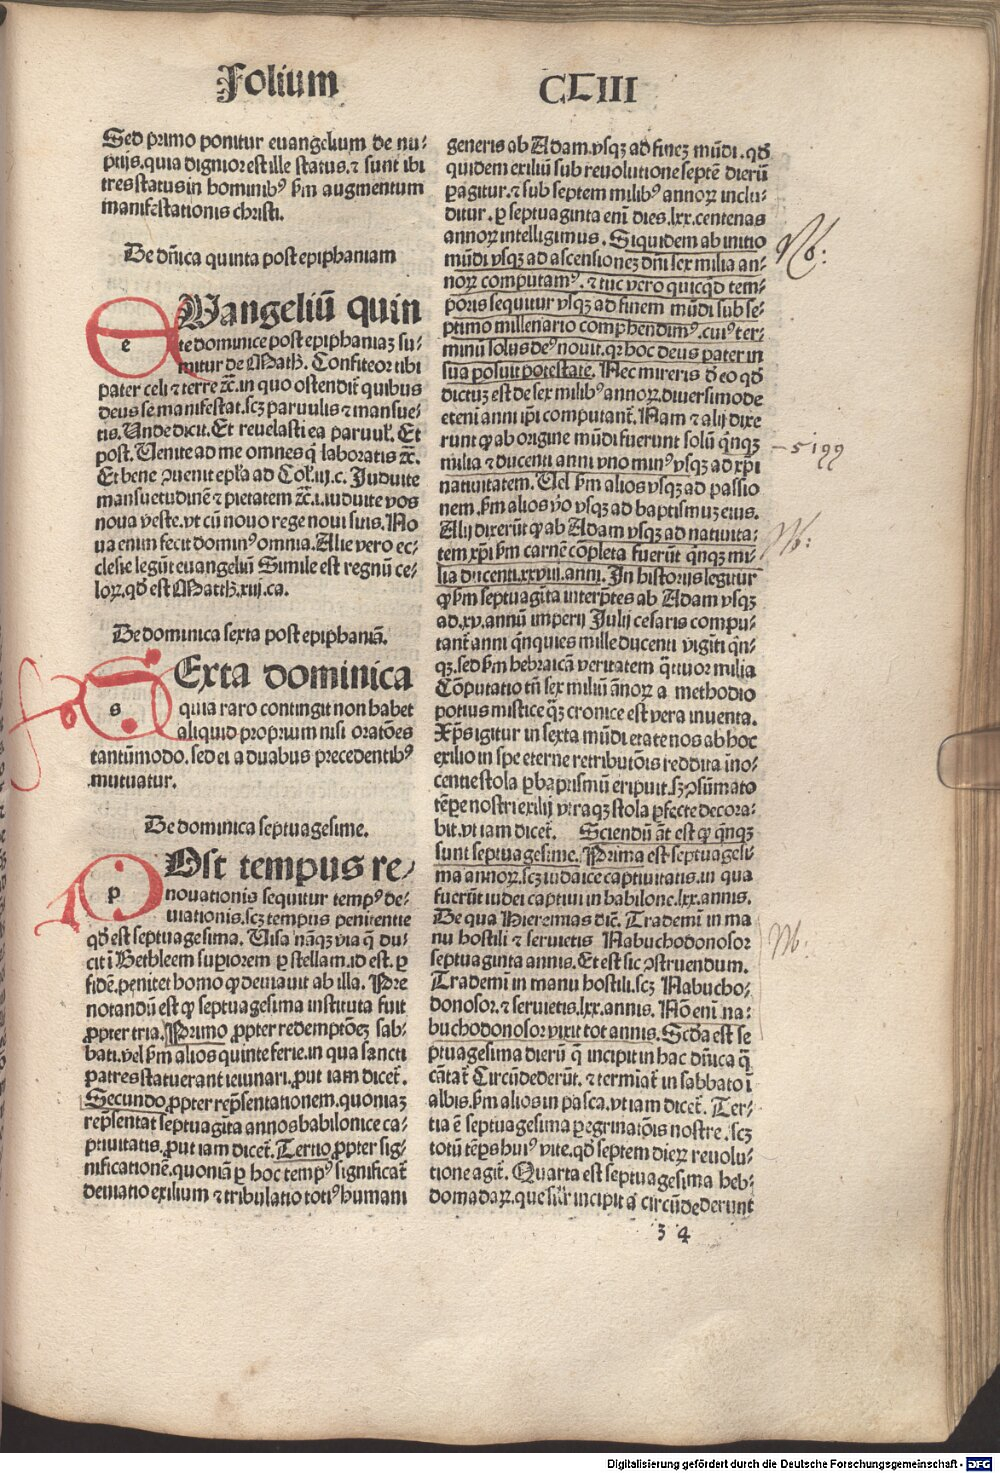 Folium CLIII
Sed primo ponitur euangelium de nu⸗
ptijs.quia dignior est ille status.⁊ sunt ibi
tres status in hominibꝰ ẜm augmentum
manifestationis christi.
De dñica quinta post epiphaniam
e
EWangeliū quin
te dominice post epiphaniaꝫ su⸗
mitur de Matth. Confiteor tibi
pater celi ⁊ terre ⁊c̄. in quo ostendit̄ quibus
deus se manifestat.scꝫ paruulis ⁊ mansue⸗
tis. Unde dicit. Et reuelasti ea paruul̓. Et
post. Uenite ad me omnes q̇ laboratis ⁊c̄.
Et bene ꝯuenit epl̓a ad Col̓.iij.c. Induite
mansuetudinē ⁊ pietatem ⁊c̄.i.induite vos
noua veste.vt cū nouo rege noui sitis. No
ua enim fecit dominꝰ omnia. Alie vero ec⸗
clesie legūt euangeliū Simile est regnū ce⸗
loꝝ.qđ est Matth.xiij.ca.
De dominica sexta post epiphaniā.
s
SExta dominica
quia raro contingit non habet
aliquid proprium nisi oratōes
tantūmodo.sed ei a duabus precedentibꝰ
mutuatur.
De dominica septuagesime.
p
POst tempus re⸗
nouationis sequitur tempꝰ de⸗
uiationis.scꝫ tempus penitentie
qđ est septuagesima. Uisa nāqꝫ via q̄ du⸗
cit ī Bethleem supiorem ꝑ stellam.id est.ꝑ
fidē.penitet homo ꝙ deuiauit ab illa. Pre
notandū est ꝙ septuagesima instituta fuit
ꝓpter tria. Primo ꝓpter redemptōeꝫ sab⸗
bati.vel ẜm alios quinte ferie.in qua sancti
patres statuerant ieiunari.put iam dicet̄.
Secundo ꝓpter rep̄sentationem.quoniaꝫ
rep̄sentat septuagīta annos babilonice ca⸗
ptiuitatis.ꝓut iam dicet̄. Tertio ꝓpter sig⸗
nificationē.quoniā ꝑ hoc tempꝰ significat̄
deuiatio exilium ⁊ tribulatio totiꝰ humani
generis ab Adam.vsqꝫ ad fineꝫ mūdi.qđ
quidem exiliū sub reuolutione septē dierū
ꝑagitur.⁊ sub septem milibꝰ annoꝝ inclu⸗
ditur.ꝑ septuaginta enī dies.lxx.centenas
annoꝝ intelligimus. Siquidem ab initio
mūdi vsqꝫ ad ascensioneꝫ dn̄i sex milia an⸗
noꝝ computamꝰ.⁊ tūc vero quicqđ tem⸗
poris sequitur vsqꝫ ad finem mūdi sub se⸗
ptimo millenario comp̄hendimꝰ.cuiꝰ ter⸗
minū solus deꝰ nouit.qr hoc deus pater in
sua posuit potestate. Nec mireris đ eo qđ
dictuꝫ est de sex milibꝰ annoꝝ.diuersimode
etenī anni ip̄i computant̄. Nam ⁊ alij dixe
runt ꝙ ab origine mūdi fuerunt solū qͥnqꝫ
milia ⁊ ducenti anni vno minꝰ vsqꝫ ad xp̄i
natiuitatem. Uel ẜm alios vsqꝫ ad passio
nem.ẜm alios v̓o vsqꝫ ad baptismuꝫ eius.
Alij dixerūt ꝙ ab Adam vsqꝫ ad natiuita⸗
tem xp̄i ẜm carnē cōpleta fuerūt qͥnqꝫ mi⸗
lia ducenti.xxviij.anni. In historijs legitur
ꝙ ẜm septuagīta interp̄tes ab Adam vsqꝫ
ad.xv.annū imperij Julij cesaris compu⸗
tant̄ anni qͥnquies mille ducenti vigīti qͥn⸗
qꝫ.sed ẜm hebraicā veritatem q̇tuor milia
Cōputatio tn̄ sex miliū ānoꝝ a methodio
potius mistice qꝫ cronice est vera inuenta.
Xp̄s igitur in sexta mūdi etate nos ab hoc
exilio in spe eterne retributōis reddita īno⸗
centie stola ꝑ baptismū eripuit.sꝫ ꝯsūmato
tēpe nostri exilij vtraqꝫ stola ꝑfecte decora⸗
bit.vt iam dicet̄. Sciendū āt est ꝙ qͥnqꝫ
sunt septuagesime. Prima est septuagesi⸗
ma annoꝝ.scꝫ iudaice captiuitatis.in qua
fuerūt iudei captiui in babilone.lxx.annis.
De qua Hieremias dic̄. Trademī in ma
nu hostili ⁊ seruietis Nabuchodonosor
septuaginta annis. Et est sic ꝯstruendum.
Trademī in manu hostili.scꝫ Nabucho⸗
donosor.⁊ seruietis.lxx.annis. Nō enī na⸗
buchodonosor vixit tot annis. Scd̄a est se
ptuagesima dierū q̄ incipit in hac dn̄ica q̄
cātat̄ Circūdederūt.⁊ termiat̄ in sabbato ī
albis.ẜm alios in pasca.vt iam dicet̄. Ter⸗
tia ē septuagesima ꝑegrinatōis nostre.scꝫ
totū tēpꝰ huiꝰ vite.qđ septem dieꝝ reuolu⸗
tione agit̄. Quarta est septuagesima heb⸗
domadaꝝ.que sil̓r incipit a circūdederunt
3 4
Nb:
– 5199
Nb:
Nb:
Digitalisierung gefördert durch die Deutsche Forschungsgemeinschaft - DFG